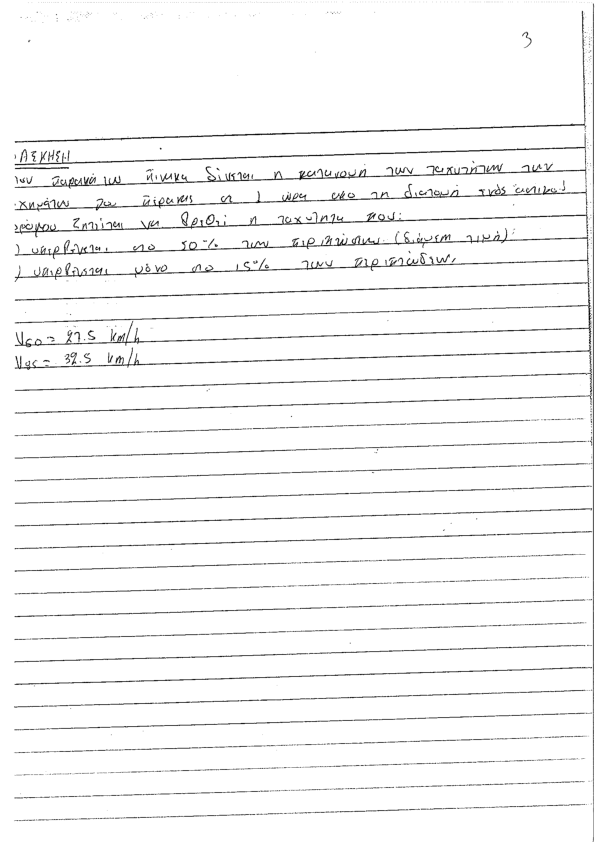 3
ΑΣΚΗΣΗ
των παρακάτω πίνακα δίνεται η κατανομή των ταχυτήτων των
χημάτων που πέρασαν σε 1 ώρα απο τη διατομή ενός αστικού
ρόμου ζητείται να βρεθεί η ταχύτητα που:
) υπερβαίνεται στο 50% των περιπτώσεων (διάμεση τιμή):
) υπερβαίνεται μόνο στο 15% των περιπτώσεων.
V50 = 27.5 km/h
V85 = 32.5 km/h